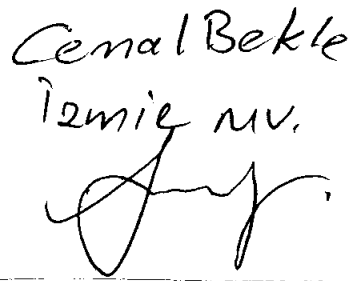 Cemal Bekle
İzmir MV.